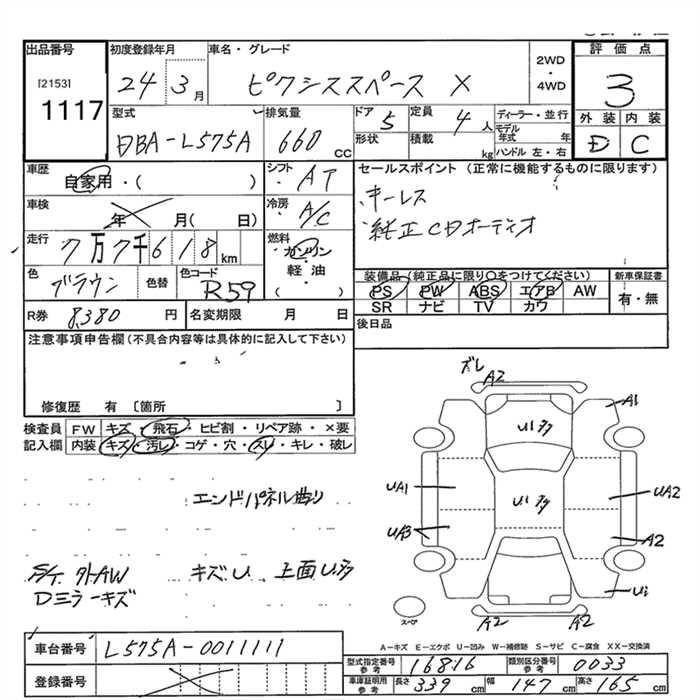 出品番号
[2153]
1117
初度登録年月
24 3 月
車名・グレード
ピクシススペース X
2WD
・
4WD
評価点
3
外装 内装
D C
型式
DBA-L575A
排気量
660 CC
ドア 5
定員 4 人
形状
積載 kg
ディーラー・並行
モデル年式 年
ハンドル 左・右
車歴
自家用・( )
シフト
AT
セールスポイント (正常に機能するものに限ります)
キーレス
純正CDオーディオ
車検
年 月( 日)
冷房
A/C
走行
7万7千618 km
燃料
ガソリン
・
軽油
( )
色
ブラウン
色替
色コード
R59
装備品(純正品に限り○をつけてください)
PS PW ABS エアB AW
SR ナビ TV カワ
新車保証書
有・無
R券 8,380 円
名変期限 月 日
後日品
注意事項申告欄(不具合内容等は具体的に記入して下さい)
修復歴 有 〔箇所 〕
検査員
記入欄
FW キズ・飛石・ヒビ割・リペア跡・×要
内装 キズ・汚レ・コゲ・穴・スレ・キレ・破レ
エンドパネル曲り
S/T 外AW キズU 上面U多
Dミラーキズ
ズレ
A2
A1
U1多
UA1
U1多
UA2
UA3
A2
U1
スペア
A2 A2
A-キズ E-エクボ U-凹み W-補修跡 S-サビ C-腐食 XX-交換済
車台番号
L575A-0011111
登録番号
型式指定番号 参考
16816
類別区分番号 参考
0033
車庫証明用 参考
長さ 339 cm
幅 147 cm
高さ 165 cm